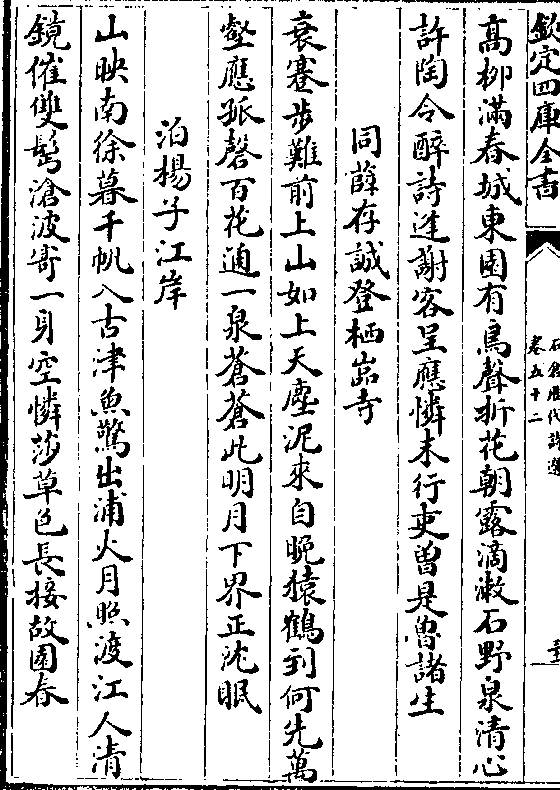 欽定四庫全書
石倉歷代詩選
卷五十二
高柳滿春城東園有鳥聲折花朝露滴漱石野泉清心
許陶令醉詩逢謝客呈應憐末行吏曽是魯諸生
同薛存誠登栖岩寺
衰蹇步難前上山如上天塵泥來自晚猿鶴到何先萬
壑應孤磬百花通一泉蒼蒼此明月下界正沈眠
泊楊子江岸
山映南徐暮千帆入古津魚驚出浦火月照渡江人清
鏡催雙鬂滄波寄一身空憐莎草色長接故園春